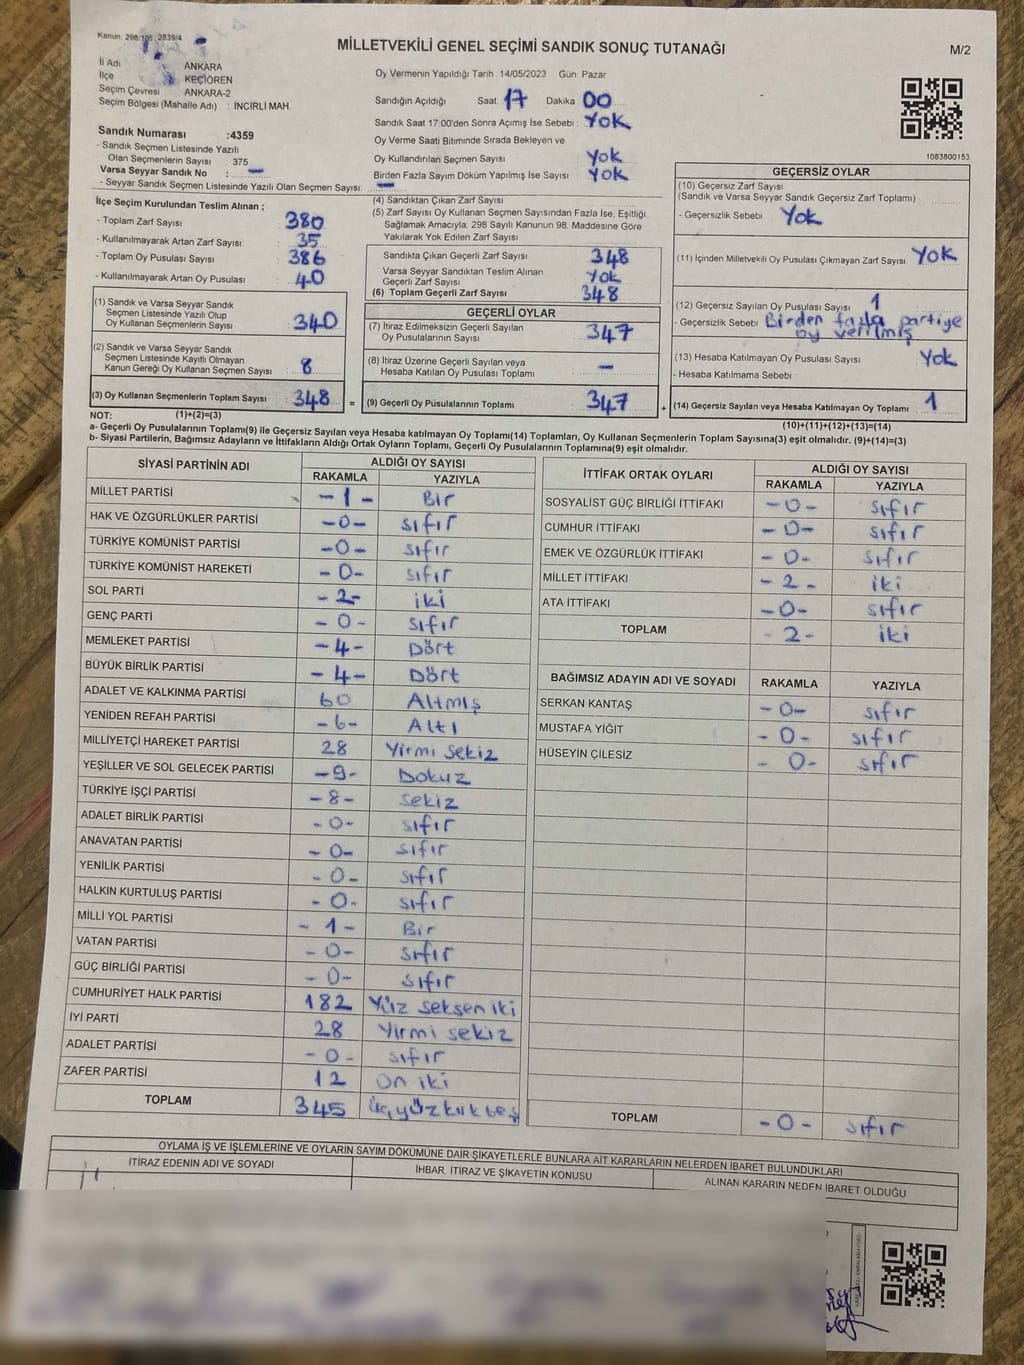 Kanun: 298/105, 2839/4
MİLLETVEKİLİ GENEL SEÇİMİ SANDIK SONUÇ TUTANAĞI
M/2
İl Adı : ANKARA
İlçe : KEÇİÖREN
Seçim Çevresi : ANKARA-2
Seçim Bölgesi (Mahalle Adı) : İNCİRLİ MAH.
Sandık Numarası :4359
- Sandık Seçmen Listesinde Yazılı
Olan Seçmenlerin Sayısı : 375
Varsa Seyyar Sandık No : -
- Seyyar Sandık Seçmen Listesinde Yazılı Olan Seçmen Sayısı: -
Oy Vermenin Yapıldığı Tarih 14/05/2023 Gün: Pazar
Sandığın Açıldığı Saat 17 Dakika 00
Sandık Saat 17:00'den Sonra Açımış İse Sebebi : YOK
Oy Verme Saati Bitiminde Sırada Bekleyen ve
Oy Kullandırılan Seçmen Sayısı YOK
Birden Fazla Sayım Döküm Yapılmış İse Sayısı YOK
1083800153
İlçe Seçim Kurulundan Teslim Alınan ;
- Toplam Zarf Sayısı 380
- Kullanılmayarak Artan Zarf Sayısı 35
- Toplam Oy Pusulası Sayısı 386
- Kullanılmayarak Artan Oy Pusulası 40
(1) Sandık ve Varsa Seyyar Sandık
Seçmen Listesinde Yazılı Olup
Oy Kullanan Seçmenlerin Sayısı 340
(2) Sandık ve Varsa Seyyar Sandık
Seçmen Listesinde Kayıtlı Olmayan
Kanun Gereği Oy Kullanan Seçmen Sayısı : 8
(3) Oy Kullanan Seçmenlerin Toplam Sayısı : 348 =
(4) Sandıktan Çıkan Zarf Sayısı
(5) Zarf Sayısı Oy Kullanan Seçmen Sayısından Fazla İse, Eşitliği
Sağlamak Amacıyla, 298 Sayılı Kanunun 98. Maddesine Göre
Yakılarak Yok Edilen Zarf Sayısı
Sandıkta Çıkan Geçerli Zarf Sayısı 348
Varsa Seyyar Sandıktan Teslim Alınan
Geçerli Zarf Sayısı YOK
(6) Toplam Geçerli Zarf Sayısı 348
GEÇERLİ OYLAR
(7) İtiraz Edilmeksizin Geçerli Sayılan
Oy Pusulalarının Sayısı : 347
(8) İtiraz Üzerine Geçerli Sayılan veya
Hesaba Katılan Oy Pusulası Toplamı : -
(9) Geçerli Oy Pusulalarının Toplamı : 347 +
GEÇERSİZ OYLAR
(10) Geçersiz Zarf Sayısı
(Sandık ve Varsa Seyyar Sandık Geçersiz Zarf Toplamı) :
- Geçersizlik Sebebi : Yok
(11) İçinden Milletvekili Oy Pusulası Çıkmayan Zarf Sayısı : YOK
(12) Geçersiz Sayılan Oy Pusulası Sayısı : 1
- Geçersizlik Sebebi : Birden fazla partiye
oy verilmiş
(13) Hesaba Katılmayan Oy Pusulası Sayısı : YOK
- Hesaba Katılmama Sebebi :
(14) Geçersiz Sayılan veya Hesaba Katılmayan Oy Toplamı : 1
NOT: (1)+(2)=(3)
(10)+(11)+(12)+(13)=(14)
a- Geçerli Oy Pusulalarının Toplamı(9) ile Geçersiz Sayılan veya Hesaba katılmayan Oy Toplamı(14) Toplamları, Oy Kullanan Seçmenlerin Toplam Sayısına(3) eşit olmalıdır. (9)+(14)=(3)
b- Siyasi Partilerin, Bağımsız Adayların ve İttifakların Aldığı Ortak Oyların Toplamı, Geçerli Oy Pusulalarının Toplamına(9) eşit olmalıdır.
SİYASİ PARTİNİN ADI ALDIĞI OY SAYISI
RAKAMLA YAZIYLA
MİLLET PARTİSİ -1- Bir
HAK VE ÖZGÜRLÜKLER PARTİSİ -0- sıfır
TÜRKİYE KOMÜNİST PARTİSİ -0- sıfır
TÜRKİYE KOMÜNİST HAREKETİ -0- sıfır
SOL PARTİ -2- iki
GENÇ PARTİ -0- sıfır
MEMLEKET PARTİSİ -4- Dört
BÜYÜK BİRLİK PARTİSİ -4- Dört
ADALET VE KALKINMA PARTİSİ 60 Altmış
YENİDEN REFAH PARTİSİ -6- Altı
MİLLİYETÇİ HAREKET PARTİSİ 28 Yirmi sekiz
YEŞİLLER VE SOL GELECEK PARTİSİ -9- Dokuz
TÜRKİYE İŞÇİ PARTİSİ -8- sekiz
ADALET BİRLİK PARTİSİ -0- sıfır
ANAVATAN PARTİSİ -0- sıfır
YENİLİK PARTİSİ -0- sıfır
HALKIN KURTULUŞ PARTİSİ -0- sıfır
MİLLİ YOL PARTİSİ -1- Bir
VATAN PARTİSİ -0- sıfır
GÜÇ BİRLİĞİ PARTİSİ -0- sıfır
CUMHURİYET HALK PARTİSİ 182 Yüz seksen iki
İYİ PARTİ 28 Yirmi sekiz
ADALET PARTİSİ -0- sıfır
ZAFER PARTİSİ 12 on iki
TOPLAM 345 üçyüzkırkbeş
İTTİFAK ORTAK OYLARI ALDIĞI OY SAYISI
RAKAMLA YAZIYLA
SOSYALİST GÜÇ BİRLİĞİ İTTİFAKI -0- sıfır
CUMHUR İTTİFAKI -0- sıfır
EMEK VE ÖZGÜRLÜK İTTİFAKI -0- sıfır
MİLLET İTTİFAKI -2- iki
ATA İTTİFAKI -0- sıfır
TOPLAM -2- iki
BAĞIMSIZ ADAYIN ADI VE SOYADI RAKAMLA YAZIYLA
SERKAN KANTAŞ -0- sıfır
MUSTAFA YİĞİT -0- sıfır
HÜSEYİN ÇİLESİZ -0- sıfır
TOPLAM -0- sıfır
OYLAMA İŞ VE İŞLEMLERİNE VE OYLARIN SAYIM DÖKÜMÜNE DAİR ŞİKAYETLERLE BUNLARA AİT KARARLARIN NELERDEN İBARET BULUNDUKLARI
İTİRAZ EDENİN ADI VE SOYADI İHBAR, İTİRAZ VE ŞİKAYETİN KONUSU ALINAN KARARIN NEDEN İBARET OLDUĞU